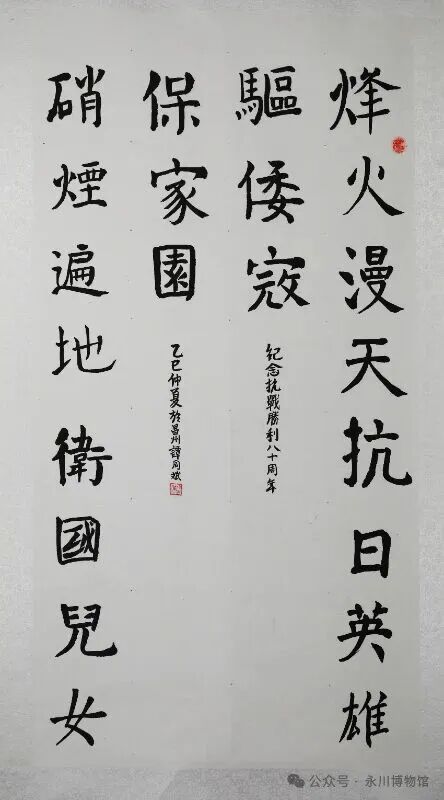 烽火漫天抗日英雄
驅倭寇
紀念抗戰勝利八十周年
保家園
乙巳仲夏於昌州譚同斌
硝煙遍地衛國兒女
公众号 · 永川博物馆